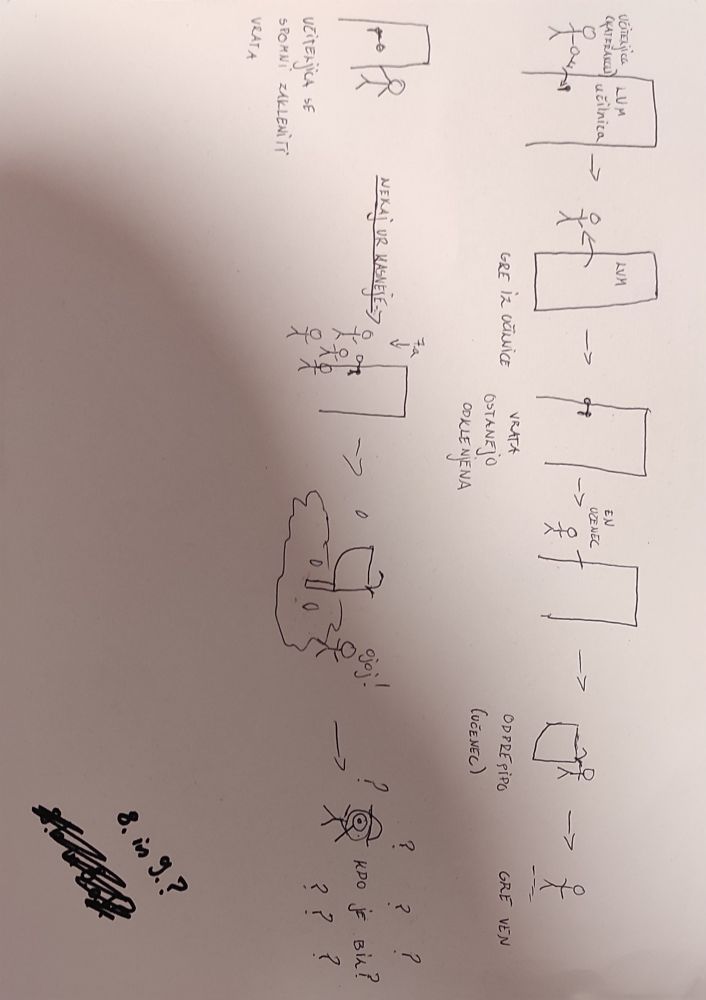 UČITELJICA
LVM
UČILNICA
LVM
GRE IZ UČILNICE
VRATA
OSTANEJO
ODKLENJENA
EN
UČENEC
ODPRE PIPO
(UČENEC)
GRE VEN
UČITELJICA SE
SPOMNI ZAKLENITI
VRATA
NEKAJ UR KASNEJE
7.a
OJOJ!
?
?
?
?
KDO JE BIL?
?
?
?
8. in 9.?